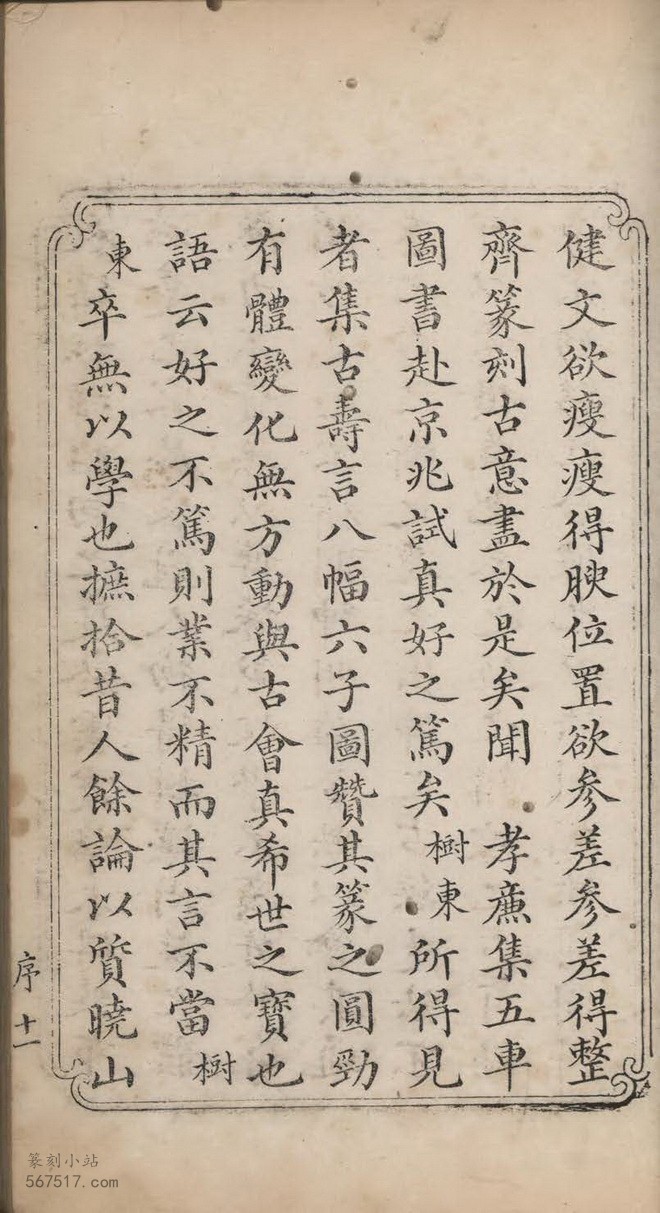 健文欲瘦瘦得腴位置欲参差参差得整
齊篆刻古意盡於是矣聞 孝廉集五車
圖書赴京兆試真好之篤矣樹東所得見
者集古壽言八幅六子圖贊其篆之圓勁
有體變化無方動與古會真希世之寶也
語云好之不篤則業不精而其言不當樹
東卒無以學也摭拾昔人餘論以質曉山
序 十一
篆刻小站
567517.com